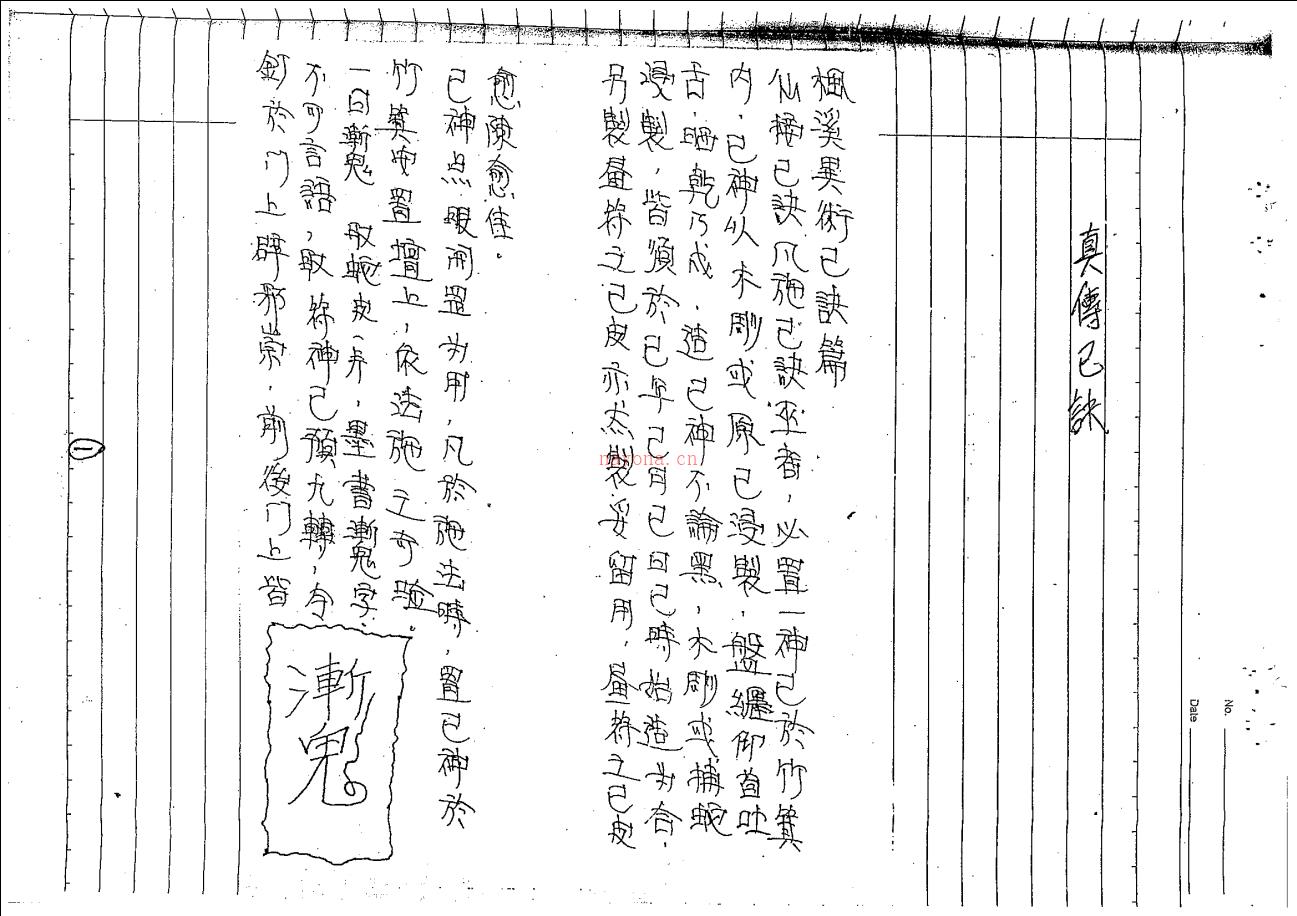 真傳巳訣
楓溪異術巳訣篇
仙揚巳訣凡施巳訣巫者，必置一神巳於竹箕
內，巳神以木彫或原巳浸製，盤纏仰首吐
舌，晒乾乃成，造巳神不論黑，木彫或捕蛇
浸製，皆須於巳年巳月巳日巳時始造為合，
另製畫符之巳皮亦為製妥留用，畫符之巳皮
愈陳愈佳。
巳神点眼開罡為用，凡於施法時，置巳神於
竹箕安置壇上，依法施之奇驗。
一曰魙 取蛇皮一片，墨書魙字，
不可言語，取符神巳預九轉，令
釘於門上辟邪祟，前後門上皆
漸鬼
一
No.
Date
nayona.cn